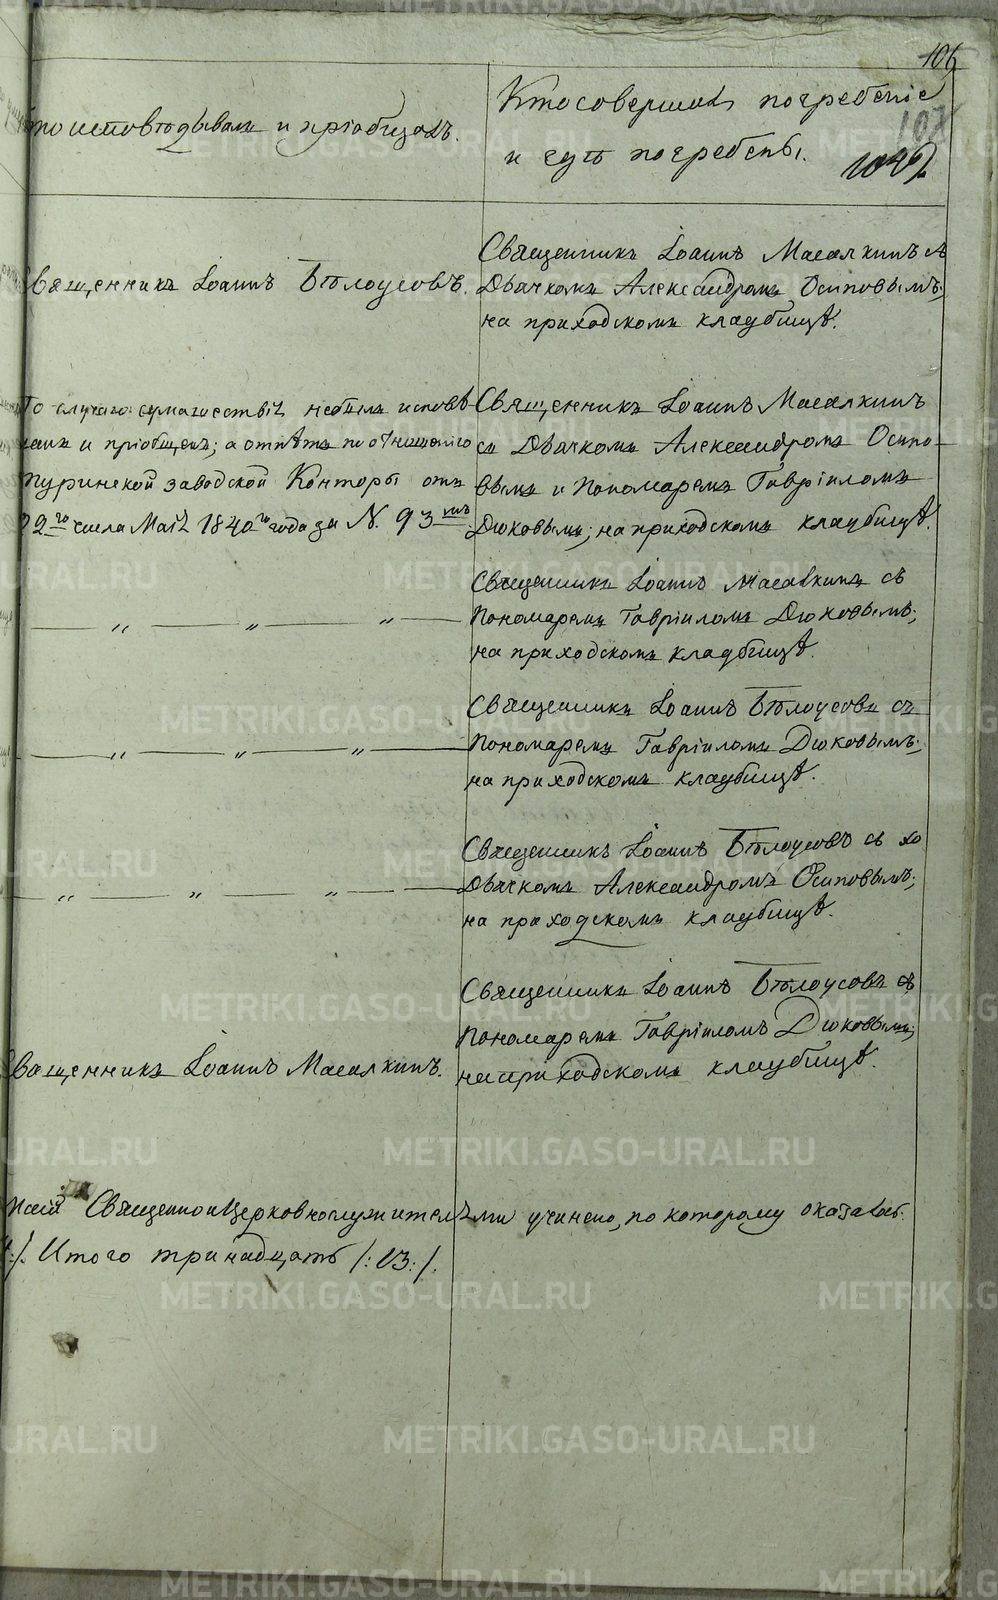 106
107
1049
Кто исповѣдывалъ и пріобщалъ.
Кто совершалъ погребеніе
и гдѣ погребены.
Священникъ Іоаннъ Бѣлоусовъ.
Священникъ Іоаннъ Масалкинъ съ
Дьячкомъ Александромъ Осиповымъ;
на приходскомъ кладбищѣ.
По случаю сумашествія небылъ исповѣ-
данъ и пріобщенъ; а отпѣтъ по отношенію
Туринской заводской Конторы отъ
22го числа Маія 1840го года за N. 93мъ
Священникъ Іоаннъ Масалкинъ
съ Дьячкомъ Александромъ Осипо-
вымъ и Пономаремъ Гавріиломъ
Дюковымъ; на приходскомъ кладбищѣ.
— „ — „ — „ —
Священникъ Іоаннъ Масалкинъ съ
Пономаремъ Гавріиломъ Дюковымъ;
на приходскомъ кладбищѣ.
— „ — „ — „ —
Священникъ Іоаннъ Бѣлоусовъ съ
Пономаремъ Гавріиломъ Дюковымъ;
на приходскомъ кладбищѣ.
— „ — „ — „ —
Священникъ Іоаннъ Бѣлоусовъ съ
Дьячкомъ Александромъ Осиповымъ;
на приходскомъ кладбищѣ.
Священникъ Іоаннъ Масалкинъ.
Священникъ Іоаннъ Бѣлоусовъ съ
Пономаремъ Гавріиломъ Дюковымъ;
на приходскомъ кладбищѣ.
Священноицерковнослужителями учинено, по которому оказалось
Итого тринадцать /:13:/.
METRIKI.GASO-URAL.RU